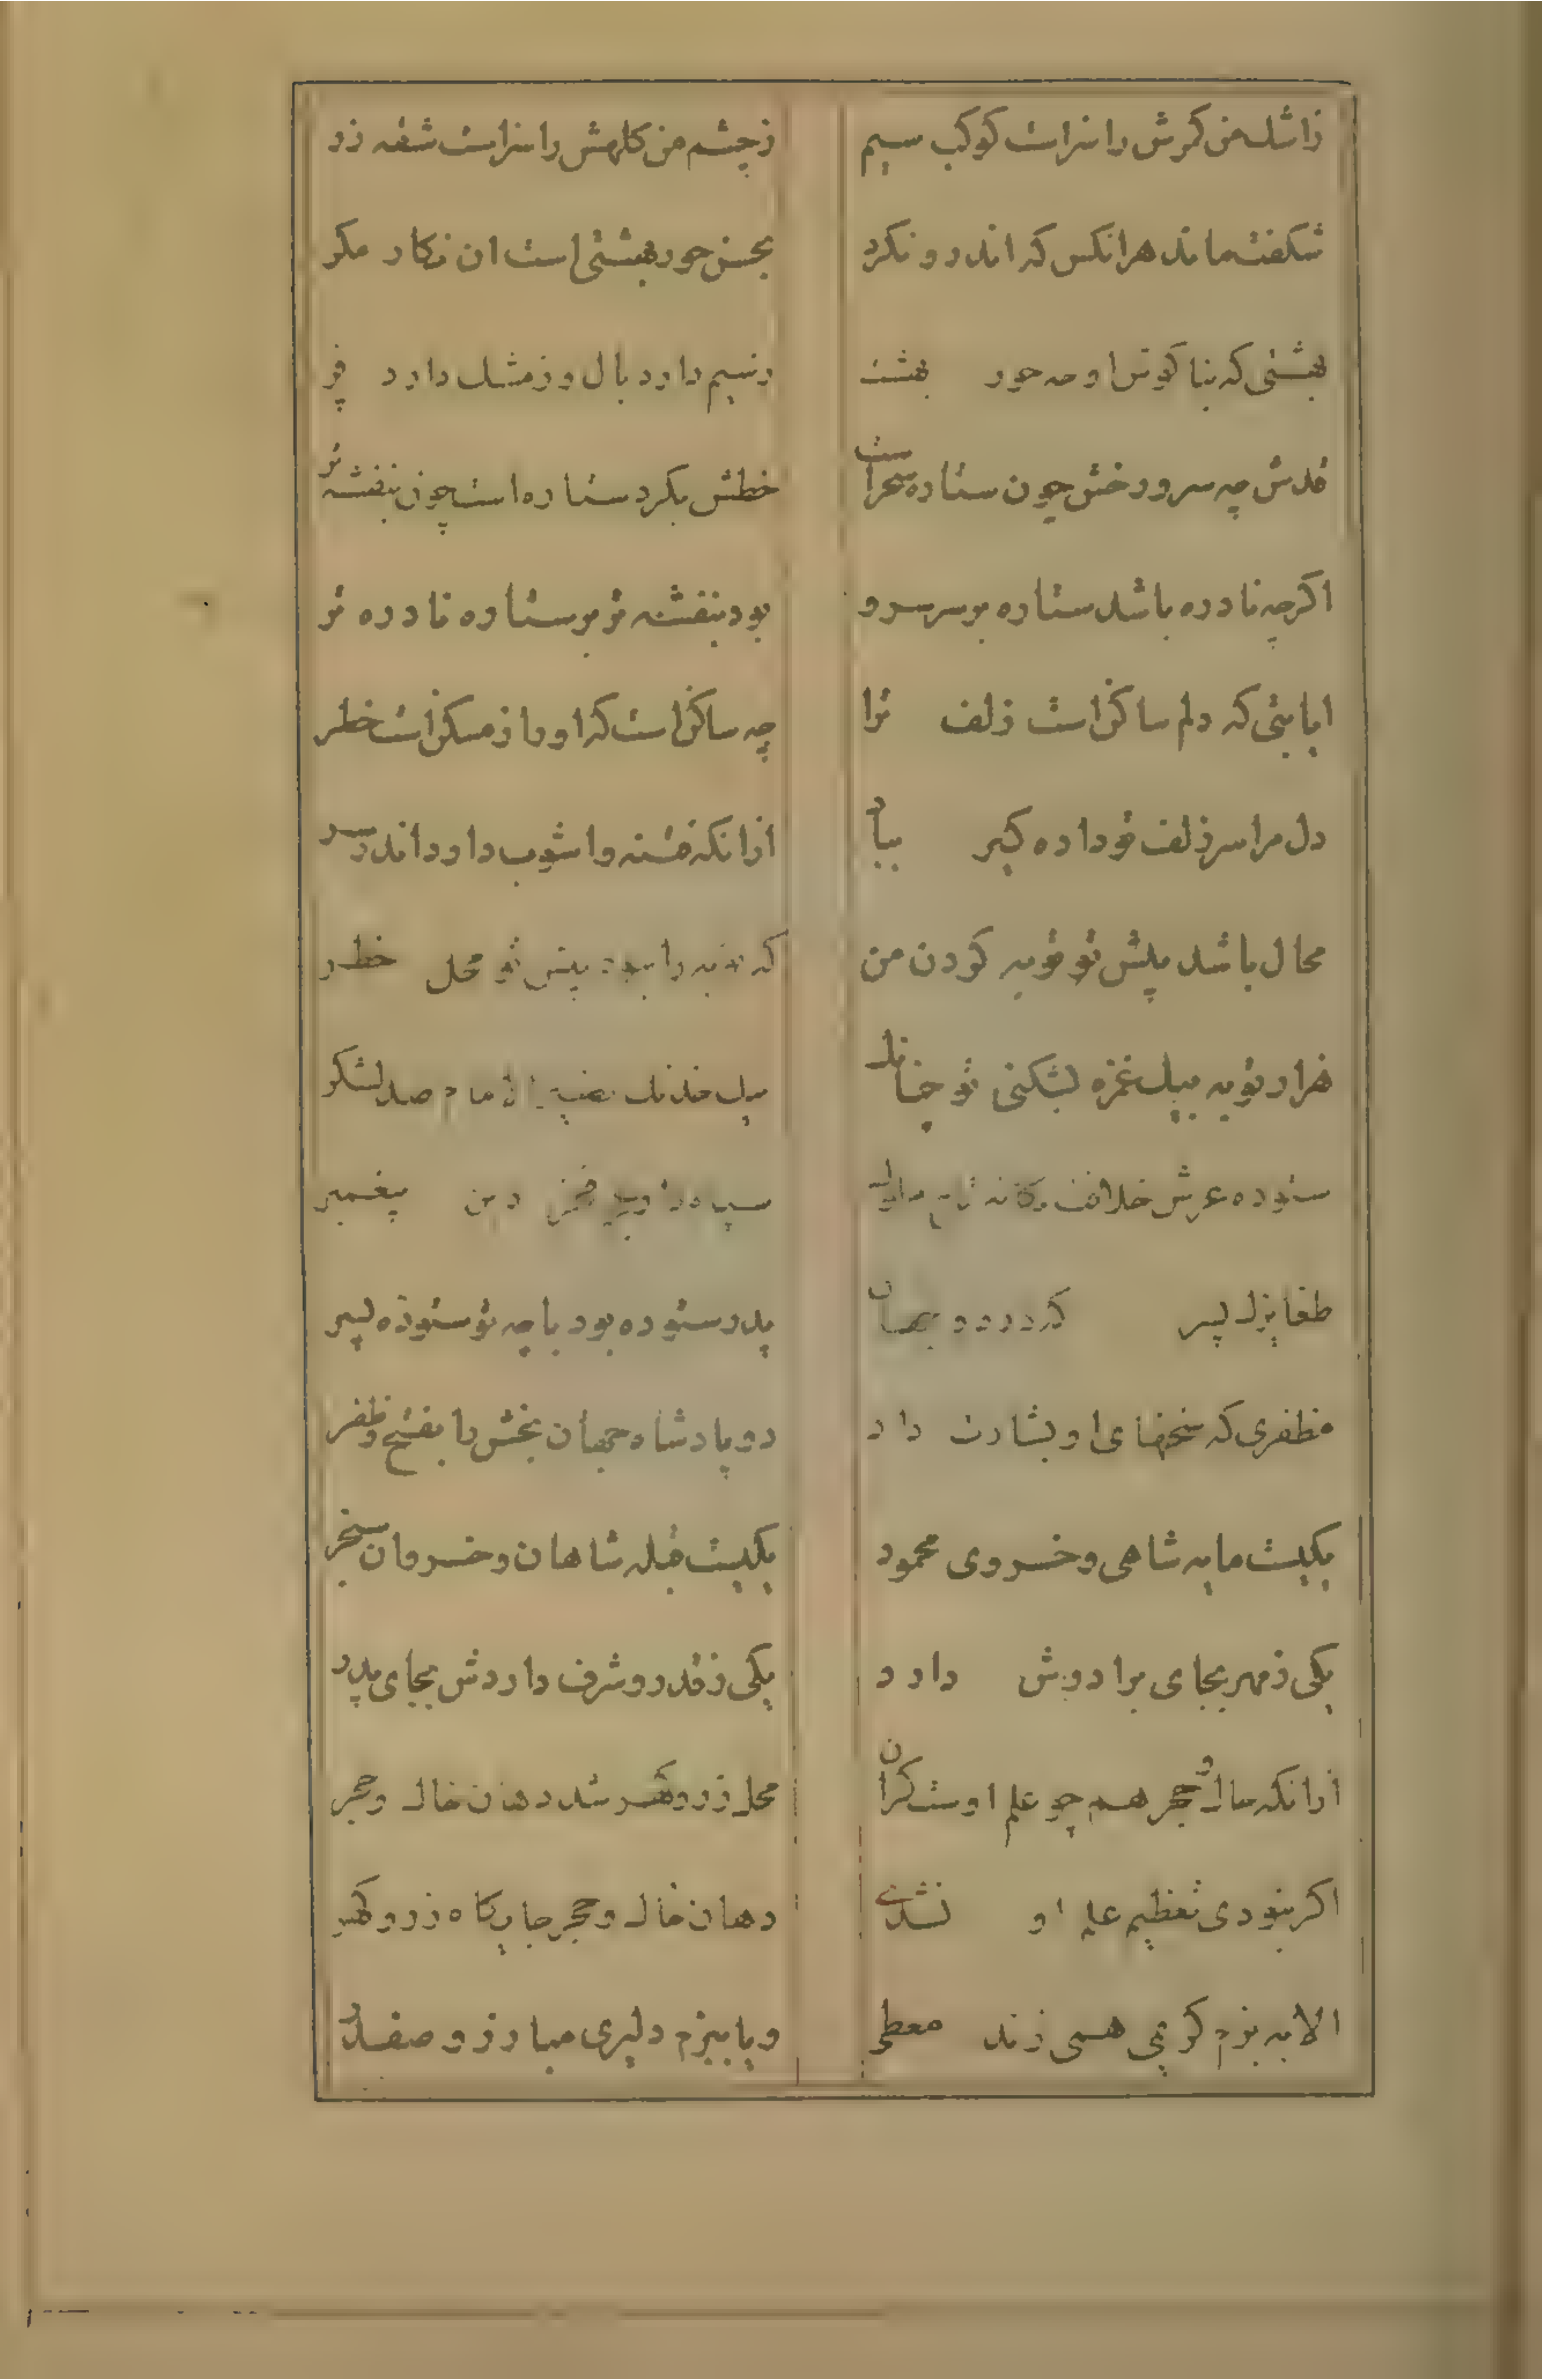 زاشك من كمرش را سزاست كوكب سيم زچشم من كلهش را سزاست شفه زر
شكفت ماند هرانكس كه اندرو نكرد بحسن حور بهشتی است ان نكار مكر
بهشتی كه بناكوش او چه حور بهشت زسيم دارد بال و زمشك دارد فر
قدش چه سرو و رخش چون ستاره سحراست خطش بكرد ستاره است چون بنفشه تر
اكرچه نادره باشد ستاره بر سر سرو بود بنفشه تر بر ستاره نادره تر
ايا بتی كه دلم ساكن است زلف ترا چه ساكن است كه او را زمسكن است خطر
دل مرا سر زلف تو داده كير بباد ازانكه فتنه و اشوب دارد اندر سر
محال باشد پيش تو توبه كردن من كه توبه را نبود پيش تو محل خطر
هزار توبه بيك غمزه بشكنی تو چنانك بيك خدنك الامام صد لشكر
ستوده عرش خلافت دين پيغمبر
طغايرك پسر كه در دو جهان پدر ستوده بود با چه تو ستوده پسر
مظفری كه سخنهای او بشارت داد دو پادشاه جهان بخش را بفتح و ظفر
يكيست مايه شاهی و خسروی محمود يكيست قبله شاهان و خسروان سنجر
يكی زمهر بجای برادرش دارد يكی زقدر و شرف داردش بجای پدر
ازانكه خاك و حجر همچو علم اوست كران محل زر و كهر شد دهان خاك و حجر
اكر نبودی تعظيم علم او نشدی دهان خاك و حجر جايكاه زر و كهر
الا به بزم كريمی همی زند معطی و يا برزم دليری مبارز و صفدر